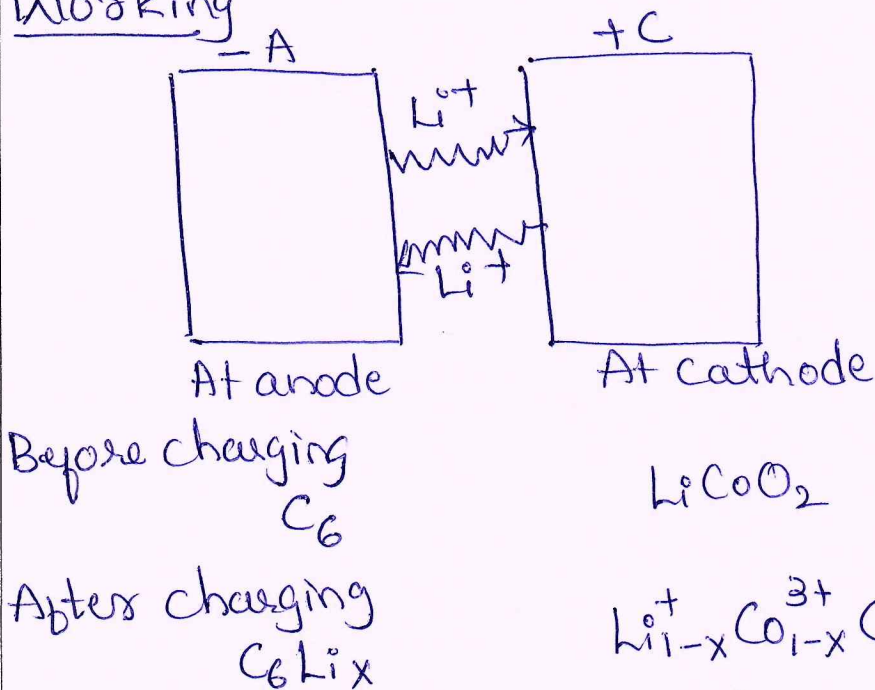 Working
- A
+ C
Li+
Li+
At anode
At cathode
Before charging
C6
LiCoO2
After charging
C6Lix
Li+1-xCo3+1-x